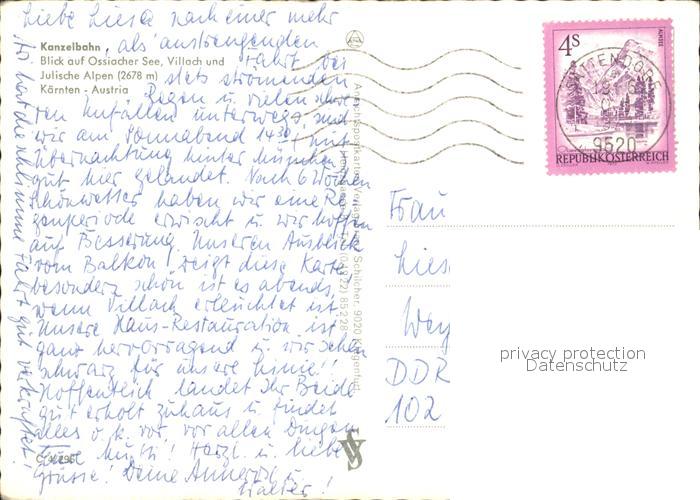 Liebe Liesa nach einer mehr
als anstrengenden
Fahrt bei
stets strömenden
Regen u. vielen schwe
ren Unfällen unterwegs, sind
wir am Sonnabend 14³⁰ (mit
Übernachtung hinter München
gut hier gelandet. Nach 6 Wochen
Schönwetter haben wir eine Re
genperiode erwischt u. wir hoffen
auf Besserung. Unseren Ausblick
vom Balkon zeigt diese Karte
besonders schön ist es abends,
wenn Villach erleuchtet ist.
Unsere Haus-Restauration ist
ganz hervorragend u. wir sehen
schwarz für unsere Linie!
Hoffentlich landet Ihr Beide
gut erholt zuhaus u. findet
alles o.k. vor, vor allen Dingen
Eure Mutti! Herzl. u. liebe
Grüsse! Deine Annerose u.
Walter!
hat die schlimme Fahrt gut verkraftet!
Kanzelbahn
Blick auf Ossiacher See, Villach und
Julische Alpen (2678 m)
Kärnten - Austria
C 4.796
Ansichtspostkarten-Verlag Schilcher, 9020 Klagenfurt
(0 42 22) 85 2 28
4S
ALMSEE
REPUBLIK ÖSTERREICH
9520
Frau
Lies
Wey
DDR
102
privacy protection
Datenschutz